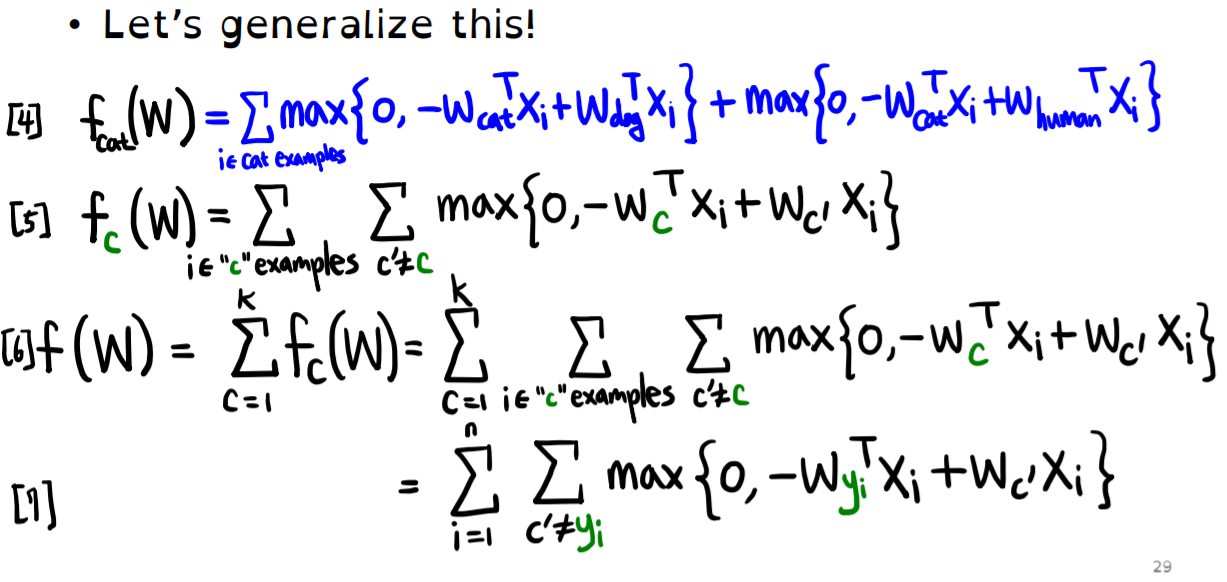 • Let's generalize this!
[4] f_cat(W) = ∑_{i ∈ cat examples} max{0, -w_cat^T x_i + w_dog^T x_i} + max{0, -w_cat^T x_i + w_human^T x_i}
[5] f_c(W) = ∑_{i ∈ "c" examples} ∑_{c'≠c} max{0, -w_c^T x_i + w_{c'} x_i}
[6] f(W) = ∑_{c=1}^{k} f_c(W) = ∑_{c=1}^{k} ∑_{i ∈ "c" examples} ∑_{c'≠c} max{0, -w_c^T x_i + w_{c'} x_i}
[7] = ∑_{i=1}^{n} ∑_{c'≠y_i} max{0, -w_{y_i}^T x_i + w_{c'} x_i}
29